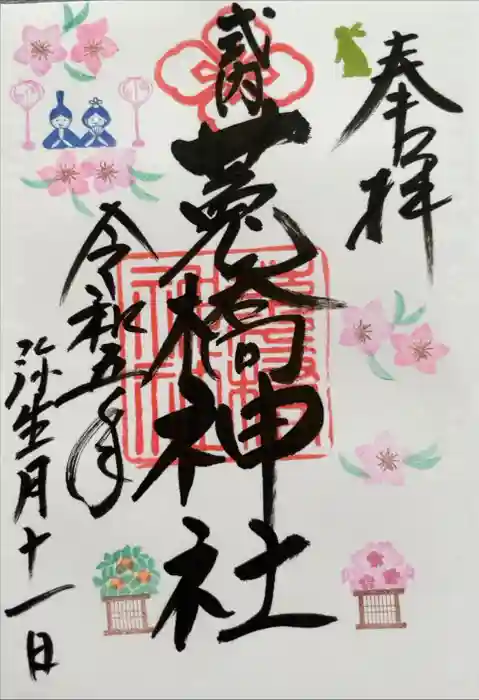 奉拝
式内
菟橋神社
令和五年
弥生月十一日